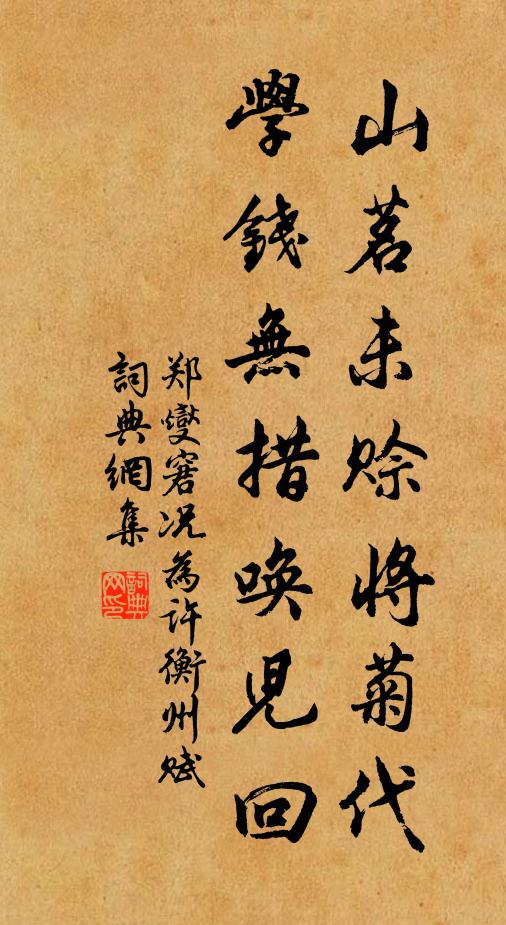 山茗未赊將菊代
學錢無措唤兒回
郑燮窘况為許衡州赋
詞典網集
詞典网印